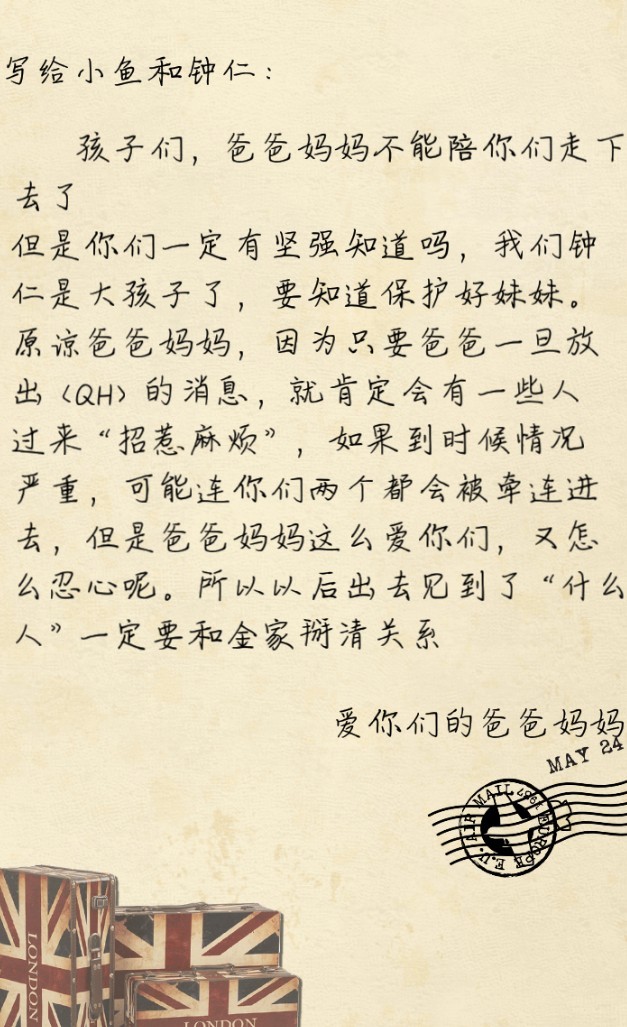 写给小鱼和钟仁：
孩子们，爸爸妈妈不能陪你们走下
去了
但是你们一定有坚强知道吗，我们钟
仁是大孩子了，要知道保护好妹妹。
原谅爸爸妈妈，因为只要爸爸一旦放
出〈QH〉的消息，就肯定会有一些人
过来“招惹麻烦”，如果到时候情况
严重，可能连你们两个都会被牵连进
去，但是爸爸妈妈这么爱你们，又怎
么忍心呢。所以以后出去见到了“什么
人”一定要和金家掰清关系
爱你们的爸爸妈妈
MAY 24
AIR MAIL 1967 E.U. EUROPE
LONDON
LONDON